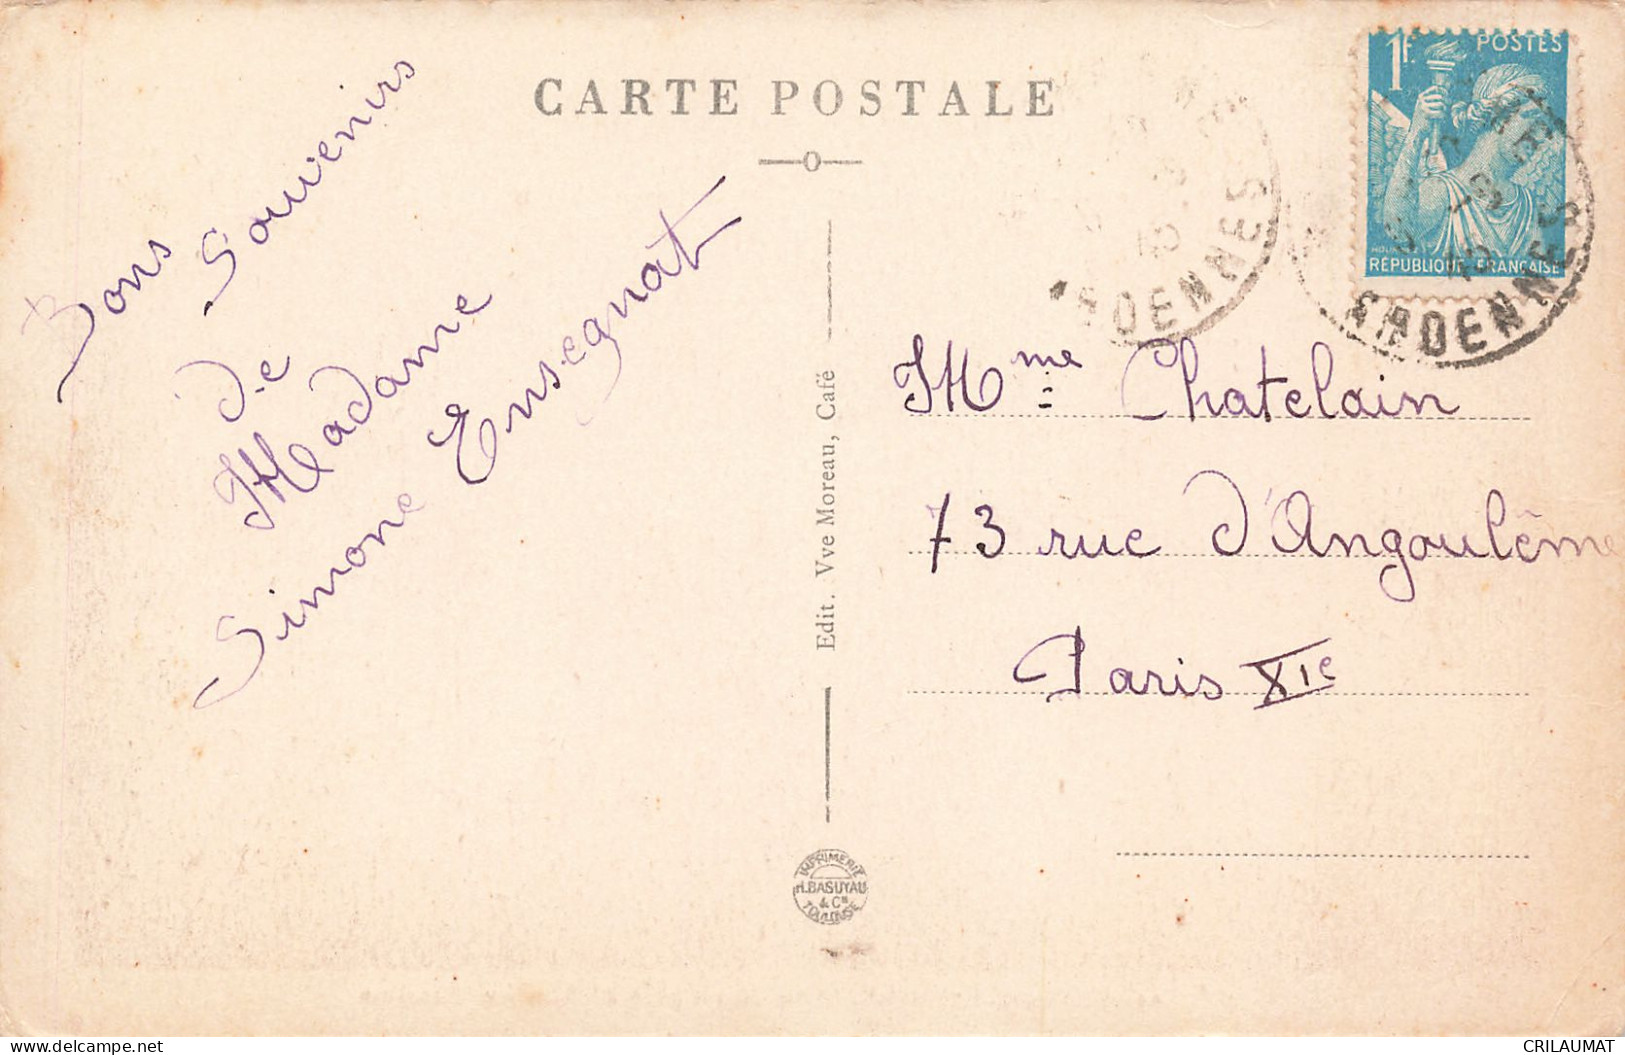 CARTE POSTALE
Bons
Souvenirs
de
Madame
Simone Ensegnat
Edit. Vve Moreau, Café
IMPRIMERIE
H. BASUYAU
& Cie
TOULOUSE
1F POSTES
RÉPUBLIQUE FRANÇAISE
ARDENNES
ARDENNES
Mme Chatelain
73 rue d'Angoulême
Paris XIe
delcampe.net
CRILAUMAT